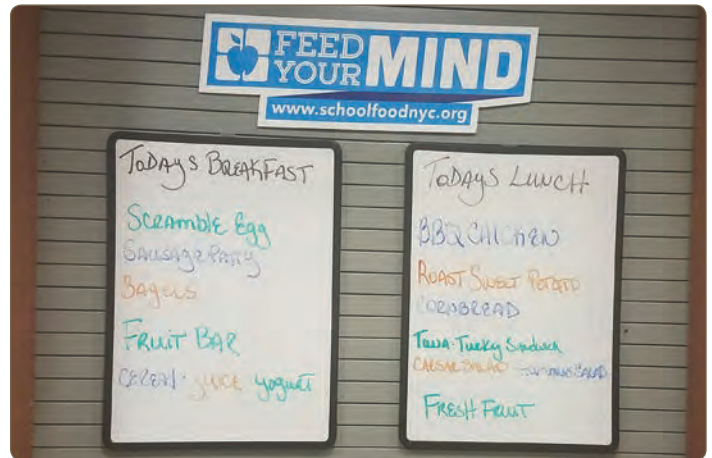 FEED
YOUR MIND
www.schoolfoodnyc.org
TODAYS BREAKFAST
SCRAMBLE EGG
SAUSAGE PATTY
BAGELS
FRUIT BAR
CEREAL JUICE yogurt
TODAYS LUNCH
BBQ CHICKEN
ROAST SWEET POTATO
CORNBREAD
TUNA-Turkey Sandwich
CAESAR SALAD SALAD
FRESH FRUIT